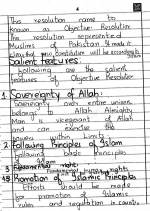 4
This resolution came to
known as Objective Resolution
The resolution represented
Muslims of Pakistan & made it
constitution will be accordingly
Islam
Salient features:
Following are the salient
features of Objective Resolution
1. Sovereignty of Allah:
Sovereignty over entire universe
belongs to Allah Almighty
Man is vicegerent of Allah
and can exercise this
power within limits
2. Following Principles of Islam
Following basic principles
of Islam
3. Fundamental human rights
4. Promotion of Islamic Principles
Efforts should be made
for promotion of Islamic
rules and regulation in country